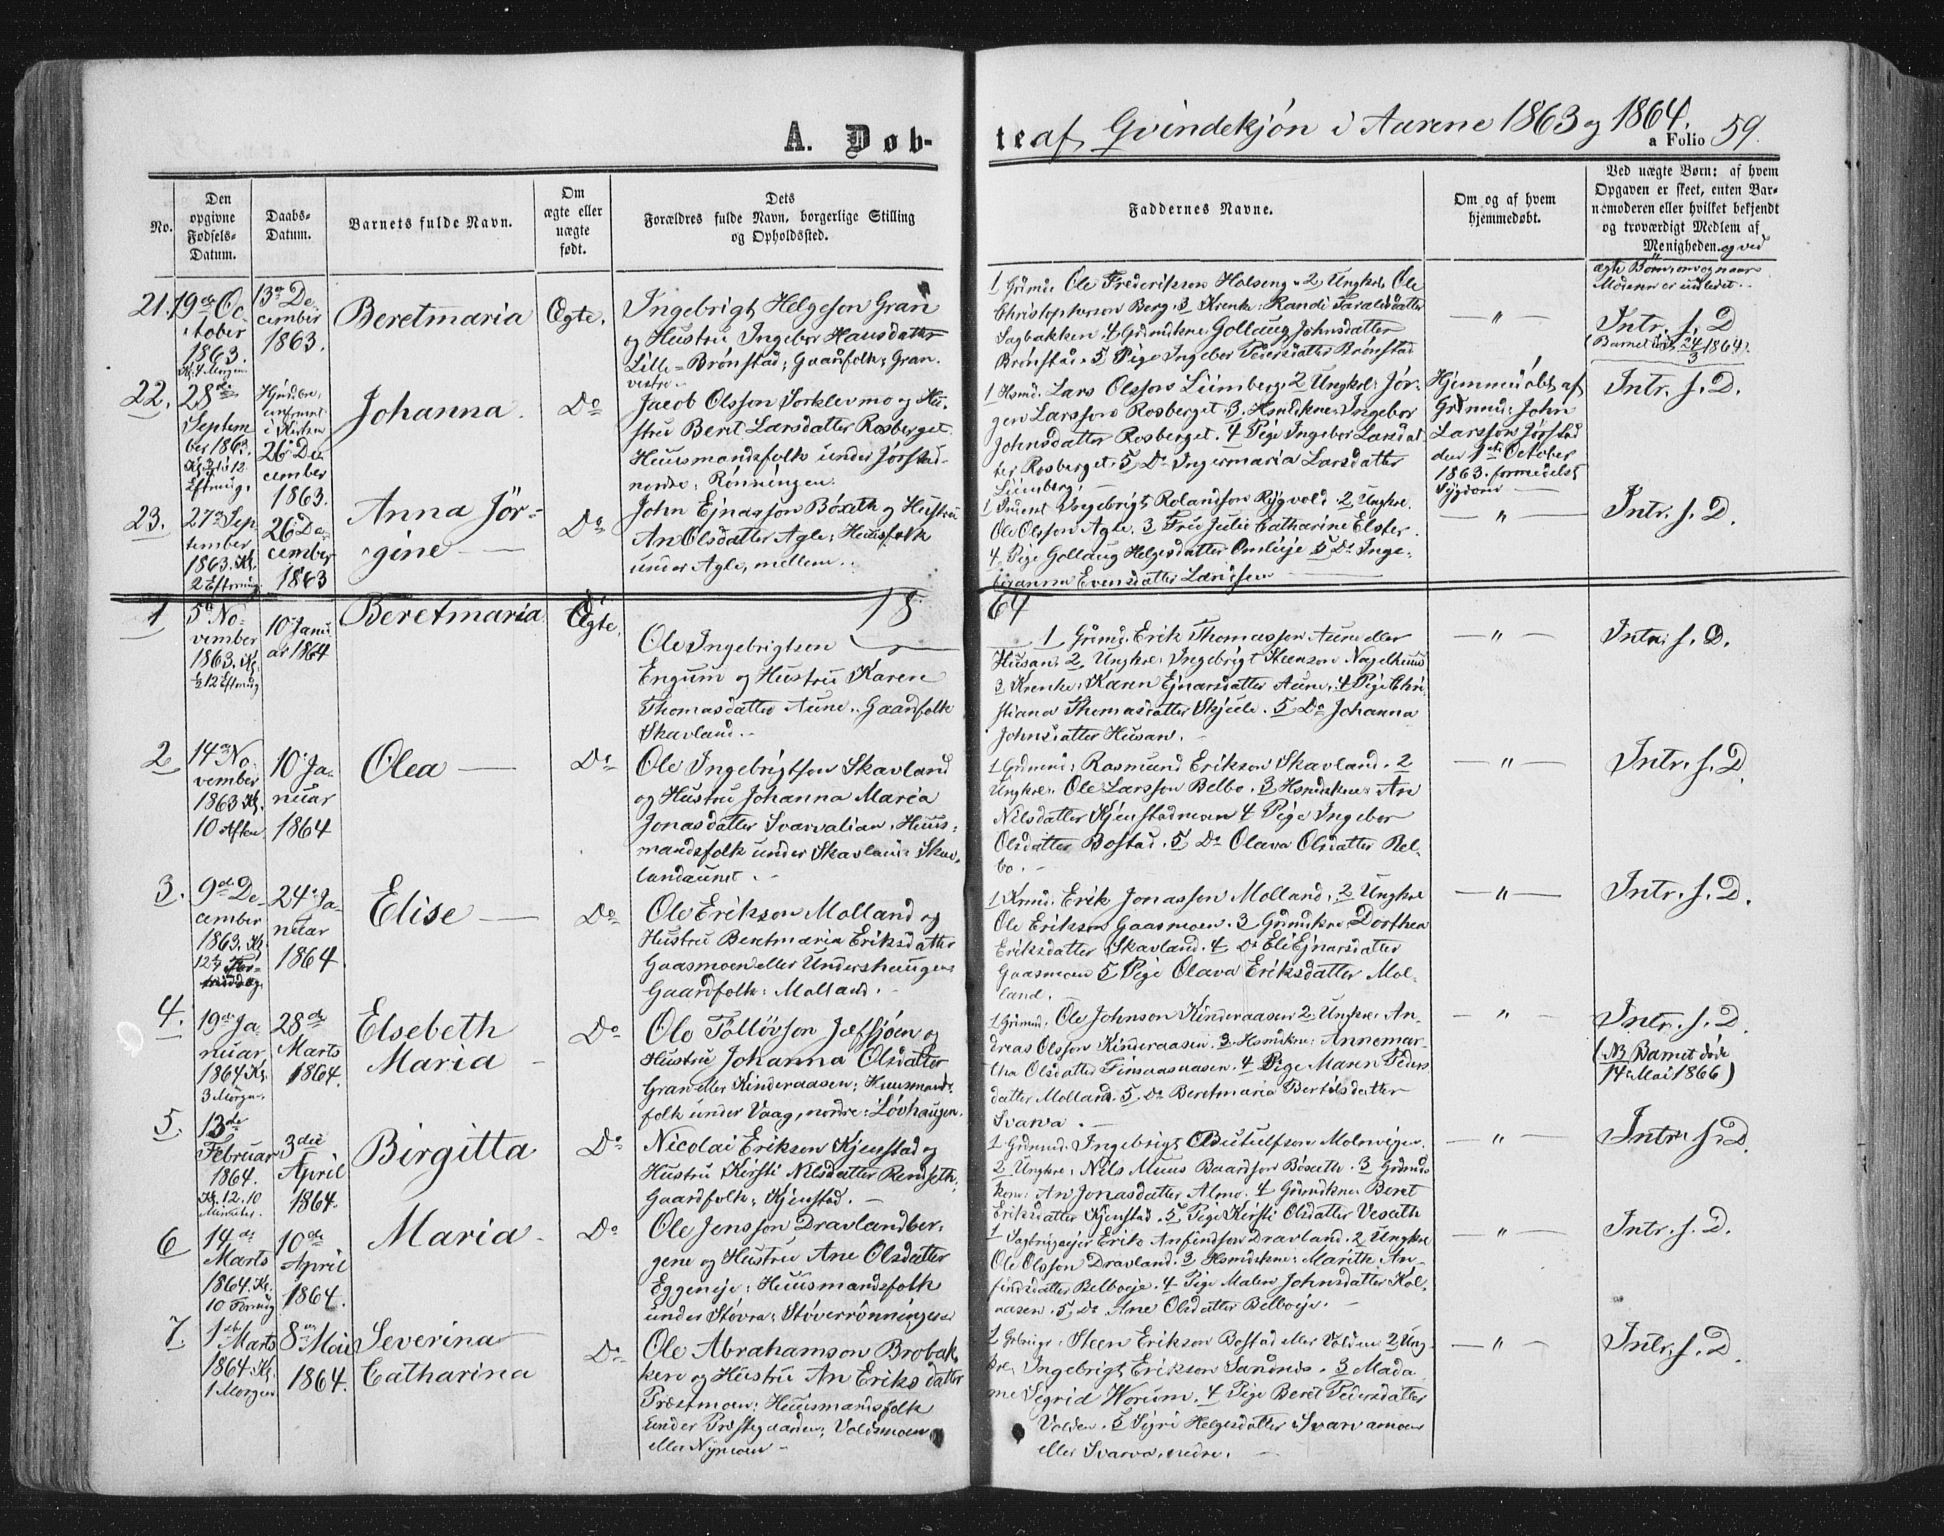 A. Døb-
teaf Qvindekjøn i Aarene 1863 og 1864.
a Folio 59.
No.
Den opgivne Fødsels-Datum.
Daabs-Datum.
Barnets fulde Navn.
Om ægte eller uægte født.
Dets Forældres fulde Navn, borgerlige Stilling og Opholdssted.
Faddernes Navne.
Om og af hvem hjemmedøbt.
Ved uægte Børn: af hvem
Opgaven er skeet, enten Bar-
nemoderen eller hvilket bekjendt
og troværdigt Medlem af
Menigheden. og ved
ægte Børn, om og naar
Moderen er indledet.
21.
19de Oc-
tober
1863.
13de De-
cember
1863.
Beretmaria
Ægte.
Ingebrigt Helgeson Gran
og Hustru Ingebor Hansdatter
Lille-Brønstad; Gaardfolk; Gran
vestre.
1 Grdmd: Ole Frederiksson Holseng. 2 Ungkrl: Ole
Christopherson Berg. 3 Krenke: Randi Taralsdatter
Sagbakken. 4 Grdmdkne Gollaug Johnsdatter
Brønstad. 5 Pige Ingebor Pedersdatter Brønstad
— " —
Intr. f. D
(Barnet død 24/3 1864).
22.
28de
Septem
ber 1863.
Kl. 12
Eftmdg.
i Kirken
26 De
cember
1863.
Johanna.
Do
Jacob Olsson Sorklevmo og Hu-
stru Beret Larsdatter Rosberget
Huusmandsfolk under Jørstad-
nordre: Rønningen.
1 Hsmd. Lars Olsson Liimberg. 2 Ungkrl: Jør-
gen Larsson Rosberget. 3. Hsmdkne: Ingebor
Johnsdatter Rosberget. 4 Pige Ingebor Larsdat
ter Rosberget. 5 Do Ingermaria Larsdatter
Liimberg.
Hjemmedøbt af
Grdmd: John
Larsson Jørstad
den 1ste October
1863. formedelst
Sygdom —
Intr. f. D.
23.
27de Sep
tember
1863. Kl.
2 Eftmdg.
26 De
cember
1863
Anna Jør-
gine —
Do
John Ejnasson Bøseth og Hustru
An Olsdatter Agle; Huusfolk
under Agle, mellem.
Ingebrigt Rolandson Rygvold. 2 Ungkre.
Ole Olsson Agle. 3 Fru Julie Catharine Elster.
4. Pige Gollaug Helgesdatter Omlieje 5 Do Inge-
boranna Evensdatter
— " —
Intr. f. D.
18
64
1
5te No-
vember
1863. Kl.
½12 Eftmdg
10 Janu
ar 1864
Beretmaria
Ægte.
Ole Ingebrigtson
Engum og Hustru Karen
Thomasdatter Aune. Gaardfolk
Skavland.
1 Grdmd. Erik Thomasson Aune eller
Husan. 2 Ungkre: Ingebrigt Steenson Nagelhuus
3 Krenke: Karen Ejnarsdatter Aune. 4 Pige Chri
stiana Thomasdatter Skjeile. 5 Do Johanna
Johnsdatter Husan.
— " —
Intr. f. D.
2
14de No-
vember
1863 Kl.
10 Aften
10 Ja-
nuar
1864
Olea —
Do
Ole Ingebrigtson Skavland
og Hustru Johanna Maria
Jonasdatter Svarvalian. Huus-
mandsfolk under Skavland: Skav-
landaunet.
1 Grdmd: Rasmund Erikson Skavland. 2
Ungkre. Ole Larsson Belbo. 3 Hsmdkne: An
Nilsdatter Kjenstadmoen 4 Pige Ingebor
Olsdatter Bostad. 5 Do Olava Olsdatter Bel-
bo.
— " —
Intr. f. D.
3.
9de De-
cember
1863. Kl.
24 Ja-
nuar
1864.
Elise —
Do
Ole Erikson Molland og
Hustru Beretmaria Eriksdatter
Gaasmoen eller Undershaugen
Gaardfolk: Molland.
1 Grdmd. Erik Jonasson Molland. 2 Ungkre
Ole Erikson Gaasmoen. 3 Grdmdkne Dorthea
Eriksdatter Skavland. 4 Do Eli Ejnarsdatter
Gaasmoen 5 Pige Olava Eriksdatter Mol-
land.
— " —
Intr. f. D.
4.
19de Ja-
nuar
1864 Kl.
3 Morgn.
28de
Marts
1864.
Elsebeth
Maria —
Do
Ole Tollövson Jæfsjøen og
Hustru Johanna Olsdatter
Gran eller Kinderaasen; Huusmands-
folk under Vaag, nordre: Løvhaugen.
1 Grdmd: Ole Johnson Kinderaasen 2 Ungkre: An-
dreas Olsson Kinderaasen. 3 Hsmdkne: Annemar-
tha Olsdatter Finsaasaasen. 4 Pige Maren Peders
datter Molland. 5. Do Beretmaria Bertelsdatter
Svarva.
— " —
Intr. f. D.
(NB Barnet døde
14 Mai 1866)
5.
13de
Februar
1864.
Kl. 12.10
Minuter.
3die
April
1864.
Birgitta
Do
Nicolai Erikson Kjenstad og
Hustru Kirsti Nilsdatter Remseth;
Gaardfolk; Kjenstad.
1 Grdmd: Ingebrigt Botulfson Molenvigen
2 Ungkre: Nils Muus Baardson Bøseth. 3 Grdmds
kone: An Jonasdatter Almo. 4 Grdmdkne Beret
Eriksdatter Kjenstad. 5 Pige Kirsti Olsdatter Veseth
— " —
Intr. f. D
6
14de
Marts
1864. Kl.
10 Formdg
10de
April
1864.
Maria
Do
Ole Jensson Dravlandber-
gene og Hustru Ane Olsdatter
Eggeneje: Huusmandsfolk
under Støvra: Støverrønningen
1 Sagbrugsejer Erik Anfindson Dravland. 2 Ungkre
Ole Olsson Dravland. 3 Hsmdkne: Marith An-
findsdatter Belboeje. 4 Pige Malen Johnsdatter Kol-
aasen. 5. Do Ane Olsdatter Belboeje.
— " —
Intr. f. D.
7.
1ste Marts
1864 Kl.
1 Morgen
8de Mai
1864.
Severina
Catharina
Do
Ole Abrahamson Brobak-
ken og Hustru An Eriksdatter
Præstmoen; Huusmandsfolk
under Præstegaarden; Voldmoen
eller Nymoen —
Steen Erikson Bostad eller Volden 2 Ung-
kre. Ingebrigt Erikson Sandnes. 3 Mada-
me Segrid Worum. 4 Pige Beret Pedersdatter
Volden. 5 Sigri Helgesdatter Svarvamoen
eller Svarva, nedre.
— " —
Intr. f. D.